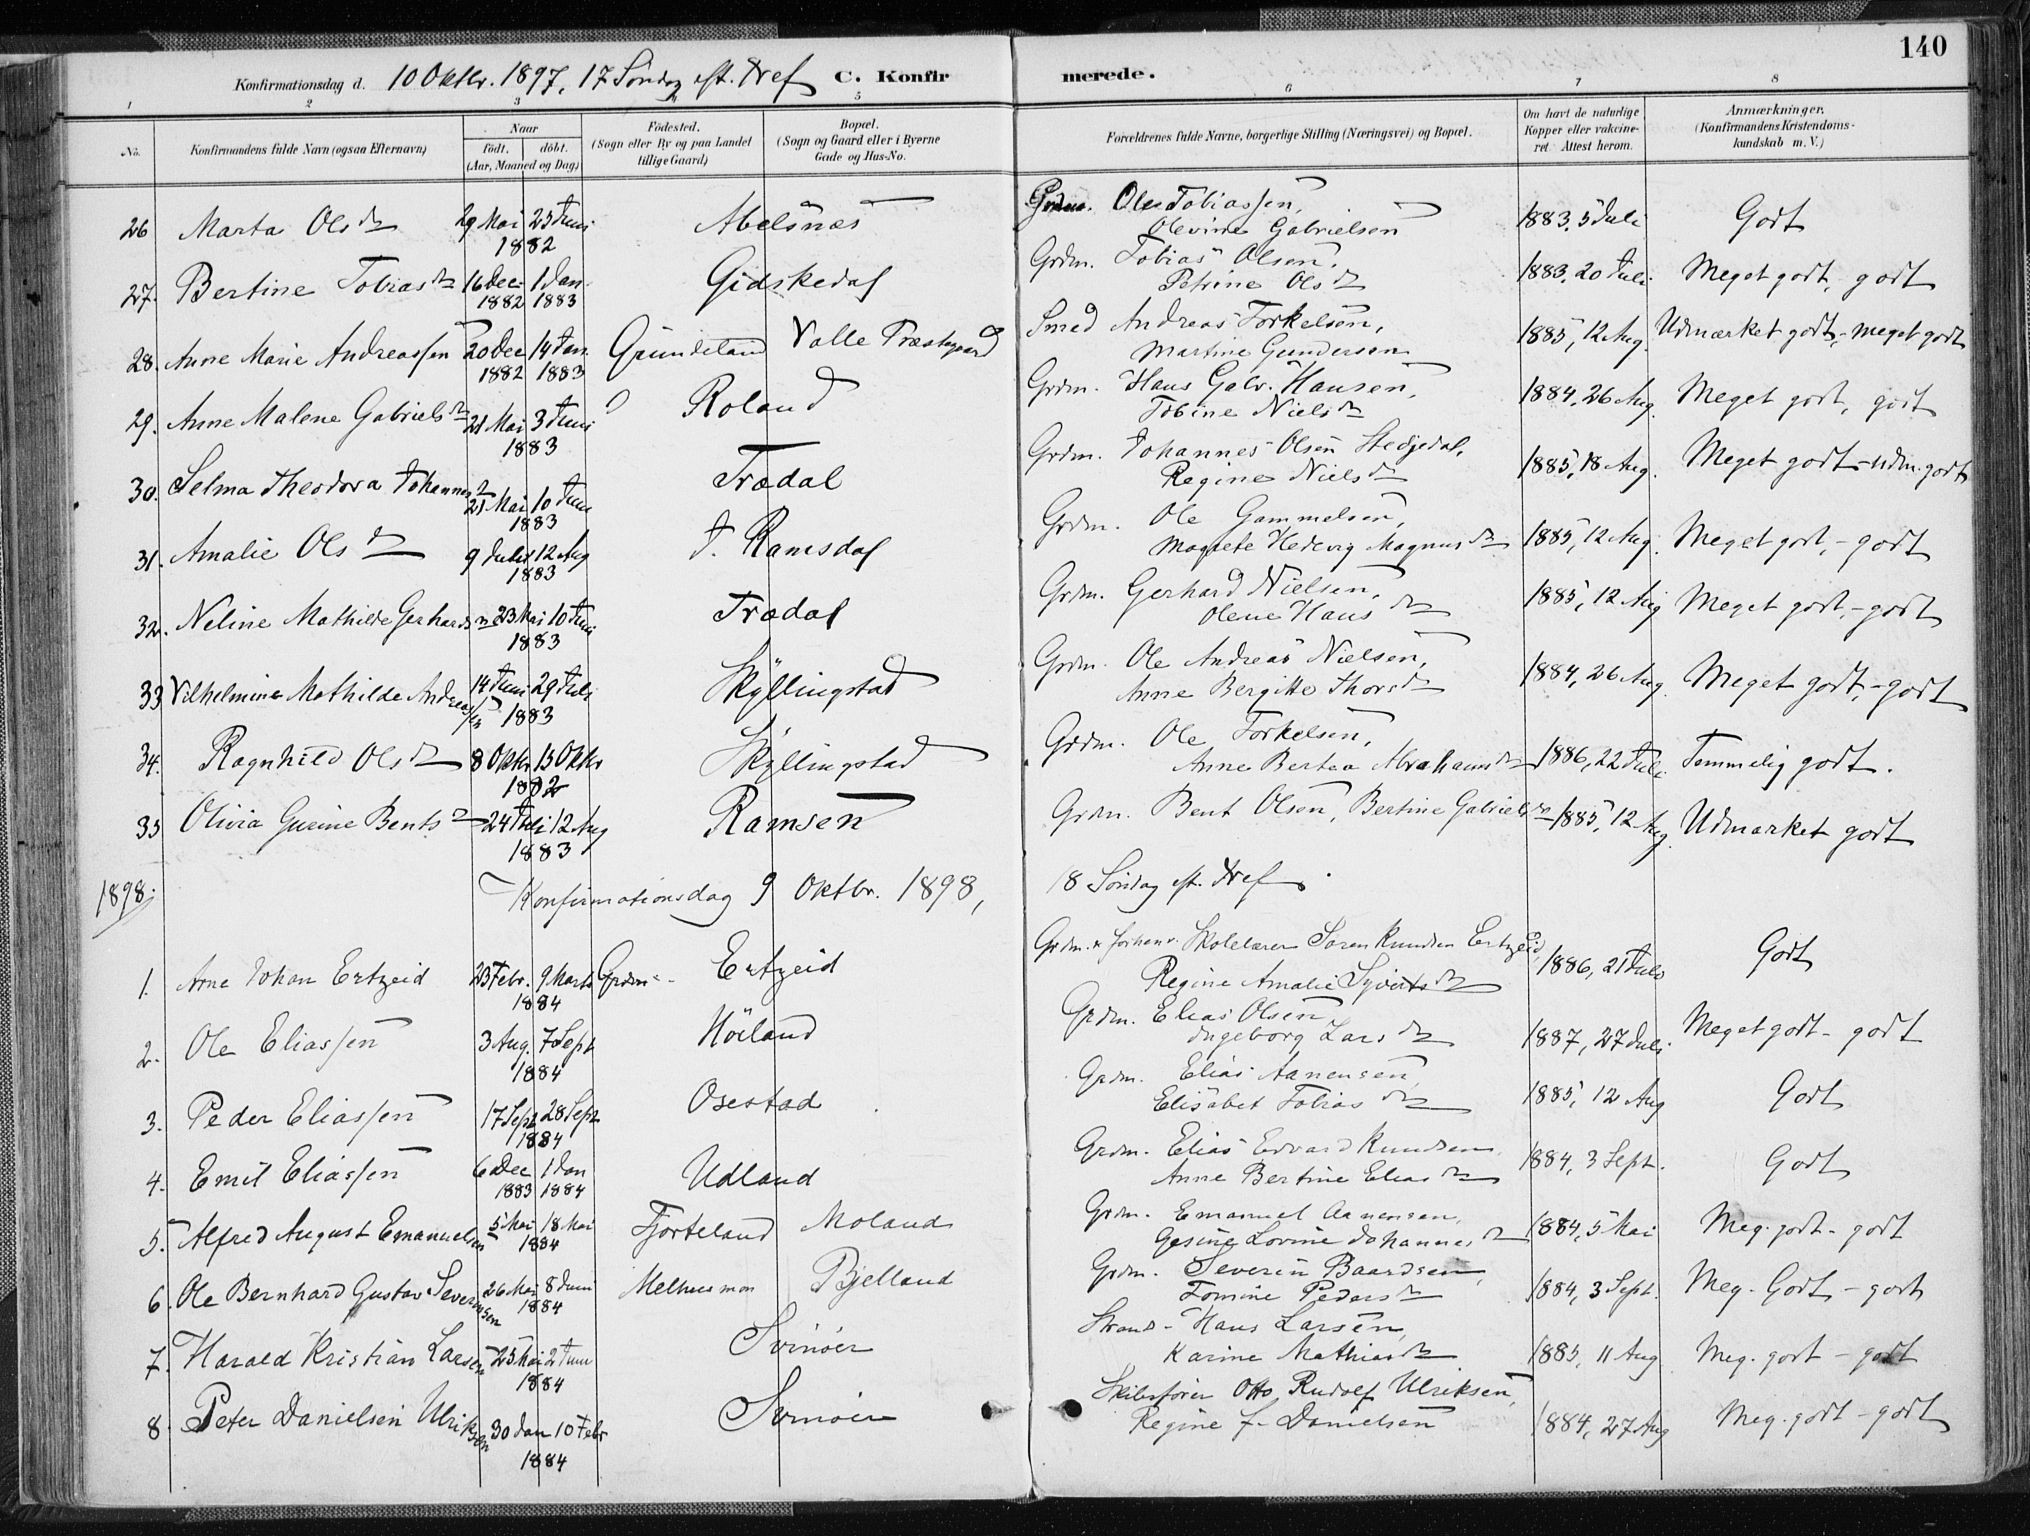 140
Konfirmationsdag d. 10 Oktbr. 1897, 17 Søndag eft. Tref C. Konfirmerede.
1 2 3 5 6 7 8
No. Konfirmandens fulde Navn (ogsaa Efternavn) Naar født. døbt. (Aar, Maaned og Dag) Fødested. (Sogn eller By og paa Landet tillige Gaard) Bopæl. (Sogn og Gaard eller i Byerne Gade og Hus-No. Forældrenes fulde Navne, borgerlige Stilling (Næringsvei) og Bopæl. Om havt de naturlige Kopper eller vakcineret. Attest herom. Anmærkninger. (Konfirmandens Kristendomskundskab m. V.)
26 Marta Olsdr 29 Mai 25 Juni 1882 Abelsnæs Grdm. Ole Tobiassen, Olevine Gabrielsen 1883, 5 Juli Godt
27. Bertine Tobiasdr 16 Dec 1882 1 Jan 1883 Gidskedal Grdm. Tobias Olsen, Petrine Olsdr 1883, 20 Juli Meget godt, godt
28. Anne Marie Andreassen 20 Dec 1882 14 Jan. 1883 Grundeland Valle Præstegaard Smed Andreas Torkelsen, Martine Gundersen 1885, 12 Aug. Udmærket godt, - meget godt
29. Anne Malene Gabrielsdr 21 Mai 3 Juni 1883 Roland Grdm. Hans Gabr. Hansen, Tobine Nielsdr 1884, 26 Aug. Meget godt, godt
30. Selma Theodora Johannesdr 21 Mai 10 Juni 1883 Trædal Grdm. Johannes Olsen Stedjedal, Regine Nielsdr 1885, 18 Aug. Meget godt - udm. godt
31. Amalie Olsdr 9 Juli 12 Aug 1883 J. Ramsdal Grdm. Ole Gammelsen, Magrete Hedevig Magnusdr 1885, 12 Aug. Meget godt, - godt
32. Neline Mathilde Gerhardsdr 23 Mai 10 Juni 1883 Trædal Grdm. Gerhard Nielsen, Olene Hansdr 1885, 12 Aug Meget godt, - godt
33 Vilhelmine Mathilde Andreassen 14 Juni 29 Juli 1883 Skyllingstad Grdm. Ole Andreas Nielsen, Anne Bergitte Thorsdr 1884, 26 Aug. Meget godt, - godt
34. Ragnhild Olsdr 8 Oktbr 15 Oktbr 1882 Skyllingstad Grdm. Ole Torkelsen, Anne Bertea Abrahamsdr 1886, 22 Juli. Temmelig godt.
35 Olivia Gurine Bentsdr 24 Juli 12 Aug 1883 Ramsen Grdm. Bent Olsen, Bertine Gabrielsdr 1885, 12 Aug. Udmærket godt
1898. Konfirmationsdag 9 Oktbr. 1898, 18 Søndag eft. Tref.
1. Arne Johan Ertzeid 23 Febr. 9 Marts 1884 Grdm. Ertzeid Grdm. & forhenv. Skolelærer Søren Knudsen Ertzeid, Regine Amalie Syvertsdr 1886, 21 Juli Godt
2. Ole Eliassen 3 Aug. 7 Sept 1884 Høiland Grdm. Elias Olsen Ingeborg Larsdr 1887, 27 Juli Meget godt - godt
3. Peder Eliassen 17 Sept 28 Sept 1884 Osestad Grdm. Elias Aanensen, Elisabet Tobiasdr 1885, 12 Aug Godt
4. Emil Eliassen 6 Dec 1883 1 Jan 1884 Udland Grdm. Elias Edvard Knudsen, Anne Bertine Eliasdr 1884, 3 Sept. Godt
5. Alfred August Emanuelsen 5 Mai 18 Mai 1884 Fjorteland Moland Grdm. Emanuel Aanensen, Gesine Lovine Johannesdr 1884, 5 Mai Meg. godt - godt
6. Ole Bernhard Gustav Severinsen 26 Mai 8 Juni 1884 Melhusmon Bjelland Grdm. Severin Baardsen, Tomine Pedersdr 1884, 3 Sept. Meg. Godt - godt
7. Harald Kristian Larsen 25 Mai 2 Juni 1884 Svinøer Strand- Hans Larsen, Karine Mathiasdr 1885, 11 Aug Meg. godt - godt
8. Peter Danielsen Ulriksen 30 Jan 10 Febr 1884 Svinøer Skibsfører Otto Rudolf Ulriksen, Regine f. Danielsen 1884, 27 Aug Meg. godt - godt